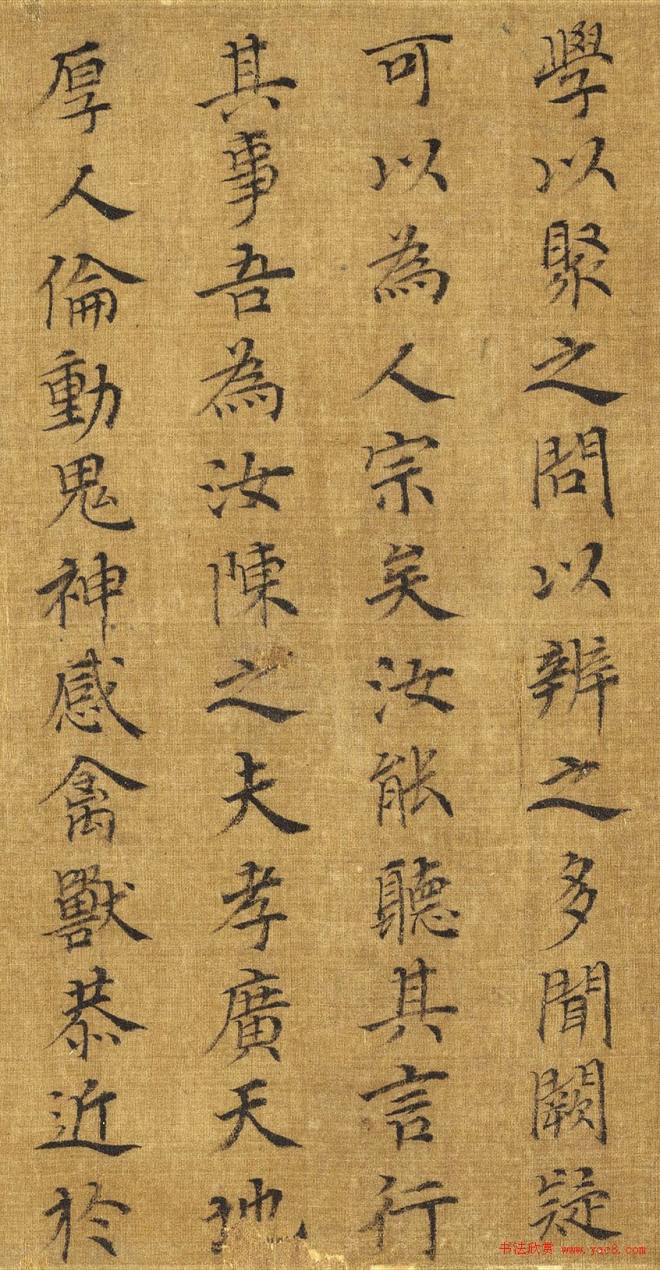 學以聚之問以辨之多聞闕疑
可以為人宗矣汝能聽其言行
其事吾為汝陳之夫孝廣天地
厚人倫動鬼神感禽獸恭近於
书法欣赏 www.yac8.com